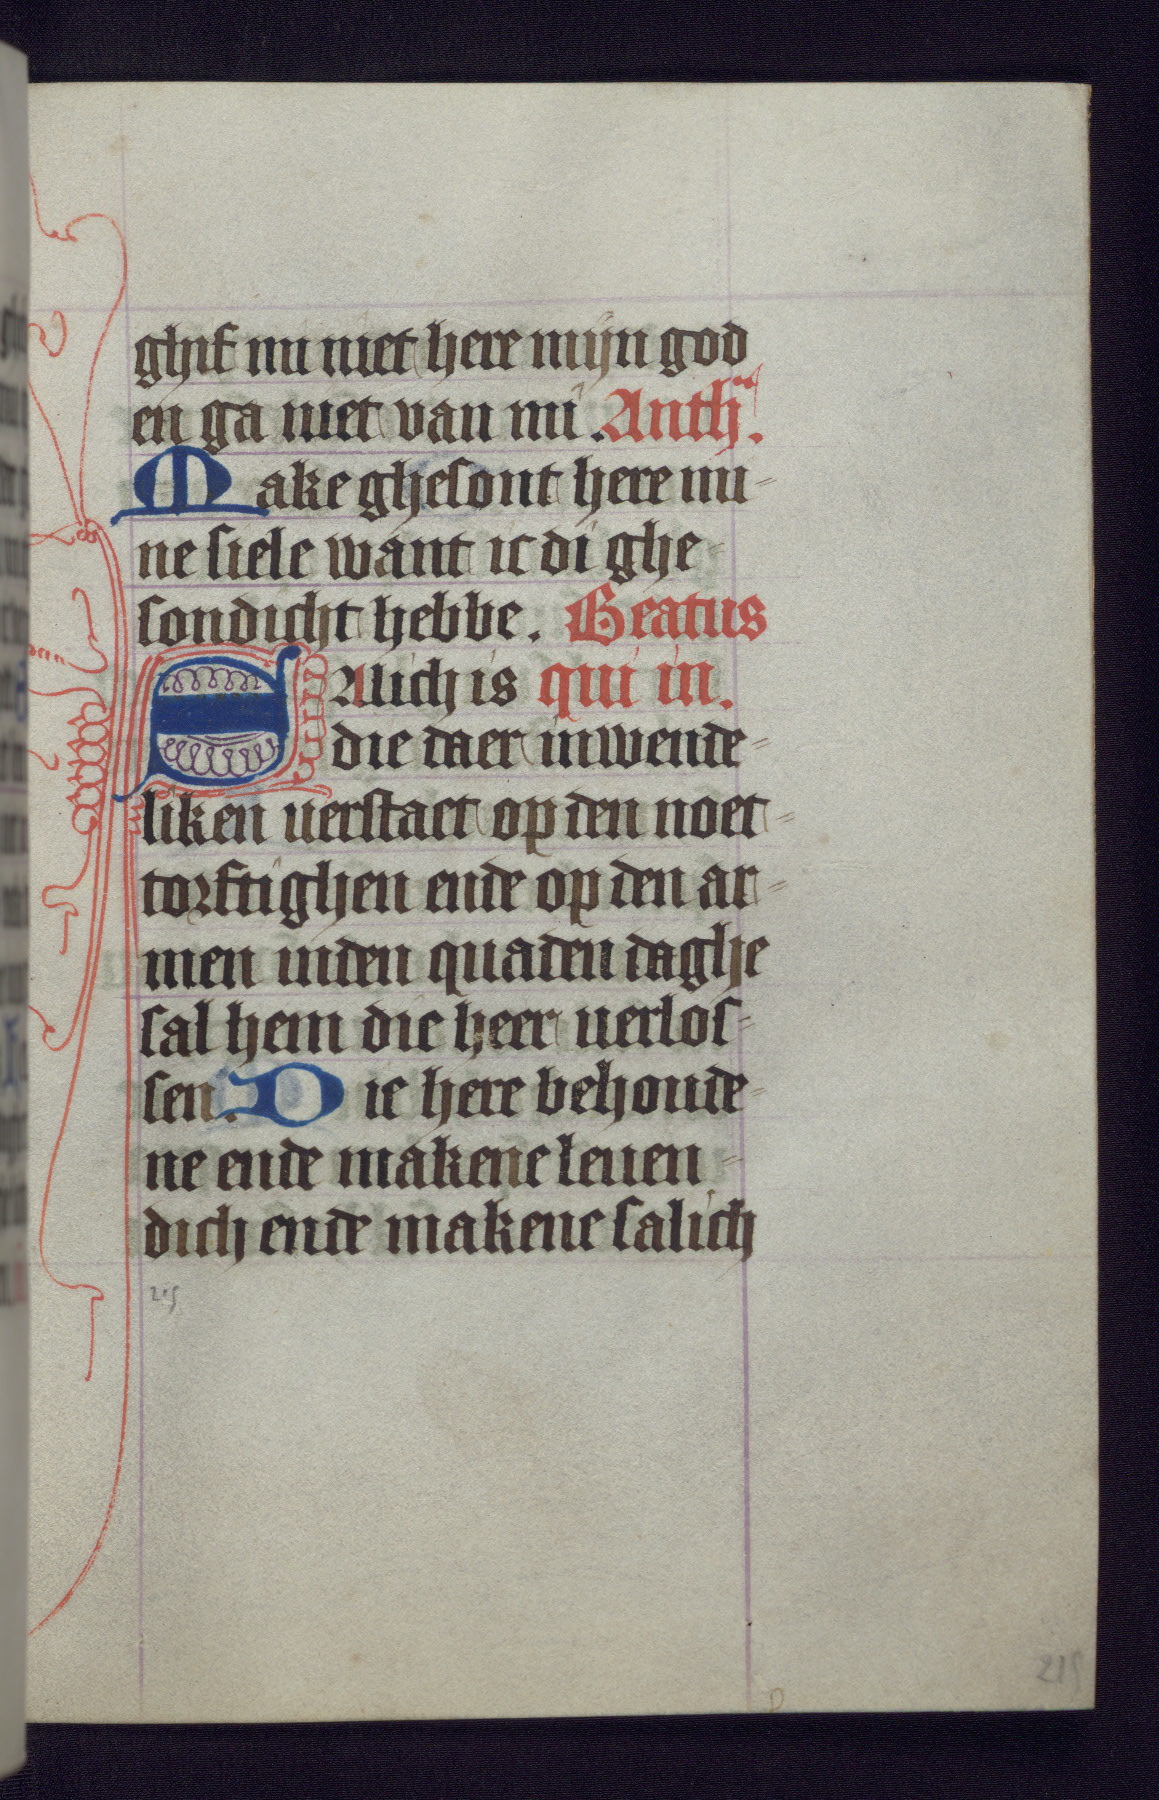 ghif mi niet here mijn god
en ga niet van mi. Anth̄.
Make ghesont here mi-
ne siele want ic di ghe-
sondicht hebbe. Beatus
Salich is qui in.
die daer inwende-
liken verstaet op den noet-
torftighen ende op den ar-
men inden quaden daghe
sal hem die heer verlos-
sen. Die here behoude-
ne ende makene leuen-
dich ende makene salich
215
215